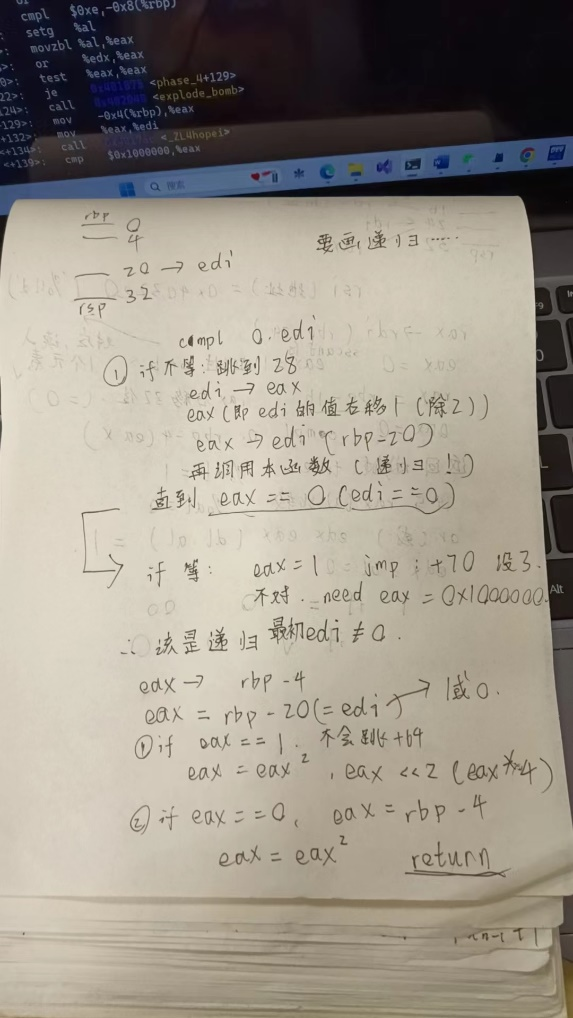 cmpl $0xe,-0x8(%rbp)
setg %al
movzbl %al,%eax
or %edx,%eax
test %eax,%eax
je <phase_4+129>
call <explode_bomb>
mov -0x4(%rbp),%eax
<+132>: mov %eax,%edi
<+134>: call <_ZL4hopei>
<+139>: cmp $0x1000000,%eax
搜索
rbp 0
4
要画递归……
20 → edi
rsp 32
cmpl 0. edi
① if 不等: 跳到 28
edi → eax
eax (即 edi 的值右移 1 (除2))
eax → edi (rbp-20)
再调用本函数 (递归!)
直到 eax == 0 (edi == 0)
if 等: eax = 1 = jmp ; +70 没了.
不对. need eax = 0X1000000.
∴ 该是递归 最初edi ≠ 0.
eax → rbp - 4
eax = rbp - 20 (= edi) → 1或0.
① if eax == 1. 不会跳 +64
eax = eax², eax << 2 (eax * 4)
② if eax == 0, eax = rbp - 4
eax = eax² return